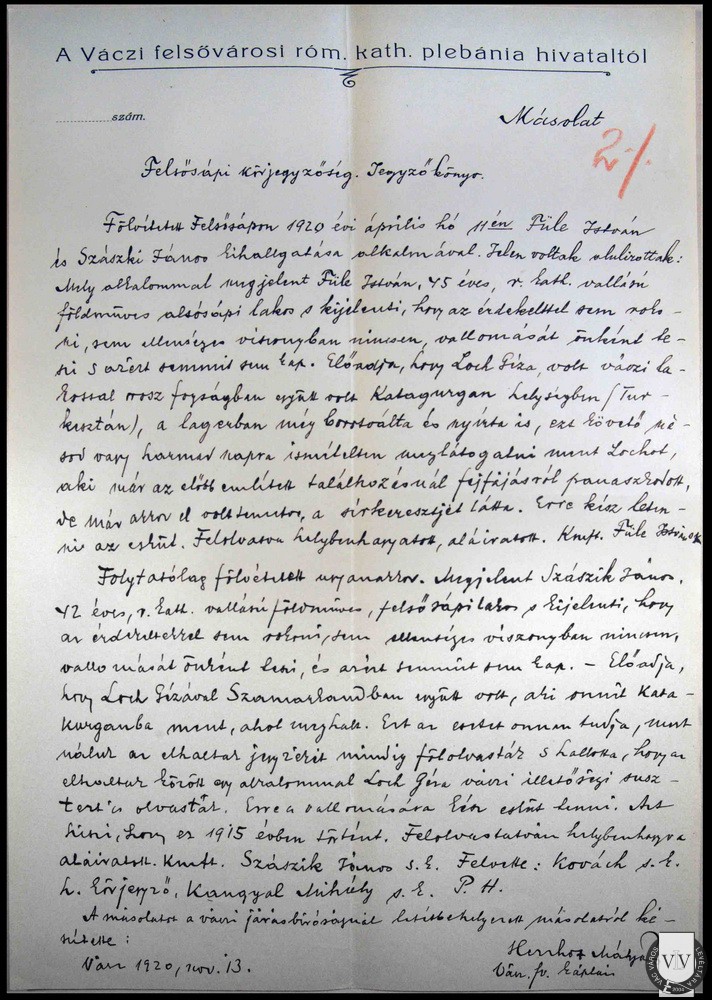 A Váczi felsővárosi róm. kath. plebánia hivataltól
szám.
Másolat
2./.
Felsősápi körjegyzőség. Jegyzőkönyv.
Fölvétetett Felsősápon 1920 évi április hó 11én Füle István
és Szászki János kihallgatása alkalmával. Jelen voltak alulirottak:
Mely alkalommal megjelent Füle István, 45 éves, r. kath. vallású
földműves alsósápi lakos s kijelenti, hogy az érdekelttel sem roko-
ni, sem ellenséges viszonyban nincsen, vallomását önként te-
szi s azért semmit sem kap. Előadja, hogy Loch Géza, volt váczi la-
kossal orosz fogságban együtt volt Katagurgan helységben (Tur-
kesztán), a lagerban még borotválta és nyírta is, ezt követő má-
sod vagy harmad napra ismételten meglátogatni ment Lochot,
aki már az előbb említett találkozásnál fejfájásról panaszkodott,
de már akkor el volt temetve, a sírkeresztjét látta. Erre kész leten-
ni az esküt. Felolvasva helybenhagyatott, aláiratott. Kmft. Füle István s.k.
Folytatólag fölvétetett ugyanakkor. Megjelent Szászik János,
42 éves, r. kath. vallású földműves, felsősápi lakos s kijelenti, hogy
az érdekeltekkel sem rokoni, sem ellenséges viszonyban nincsen,
vallomását önként teszi, és azért semmit sem kap. – Előadja,
hogy Loch Gézával Szamarkandban együtt volt, aki onnit Kata-
kurganba ment, ahol meghalt. Ezt az esetet onnan tudja, mert
náluk az elhaltak jegyzékét mindig fölolvasták s hallotta, hogy az
elhaltak között egy alkalommal Loch Géza váczi illetőségű susz-
tert is olvasták. Erre a vallomására kész esküt tenni. Azt
hiszi, hogy ez 1915 évben történt. Felolvastatván helybenhagyva
aláiratott. Kmft. Szászik János s.k. Felvette: Kovách s.k.
h. körjegyző, Kangyal Mihály s.k. P. H.
A másolatot a váczi járásbíróságnál letétbehelyezett másolatról ké-
szítette:
Vácz 1920, nov. 13.
Mátyás
Vácz. fv. káplán
VÁC VÁROS LEVÉLTÁRA
VVL
2004